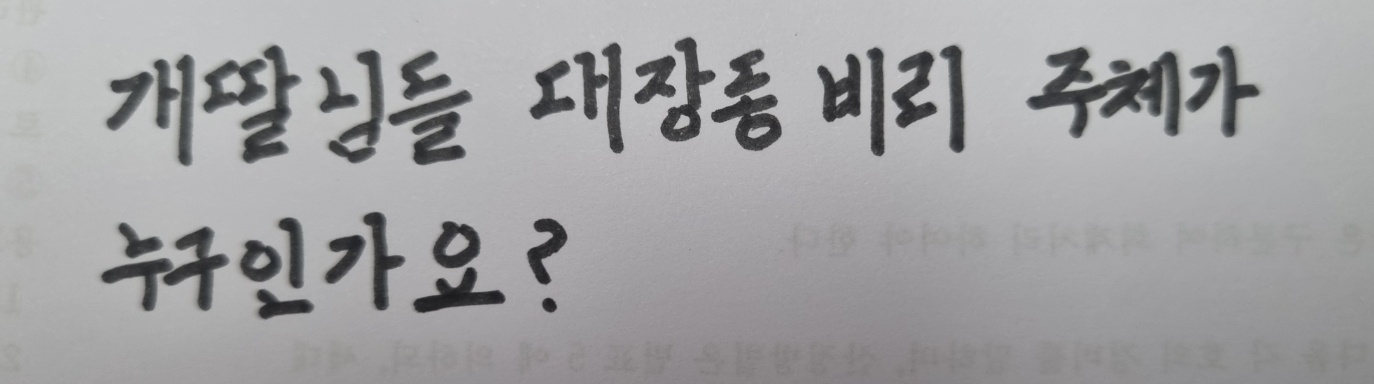 개딸님들 대장동 비리 주체가
누구인가요?